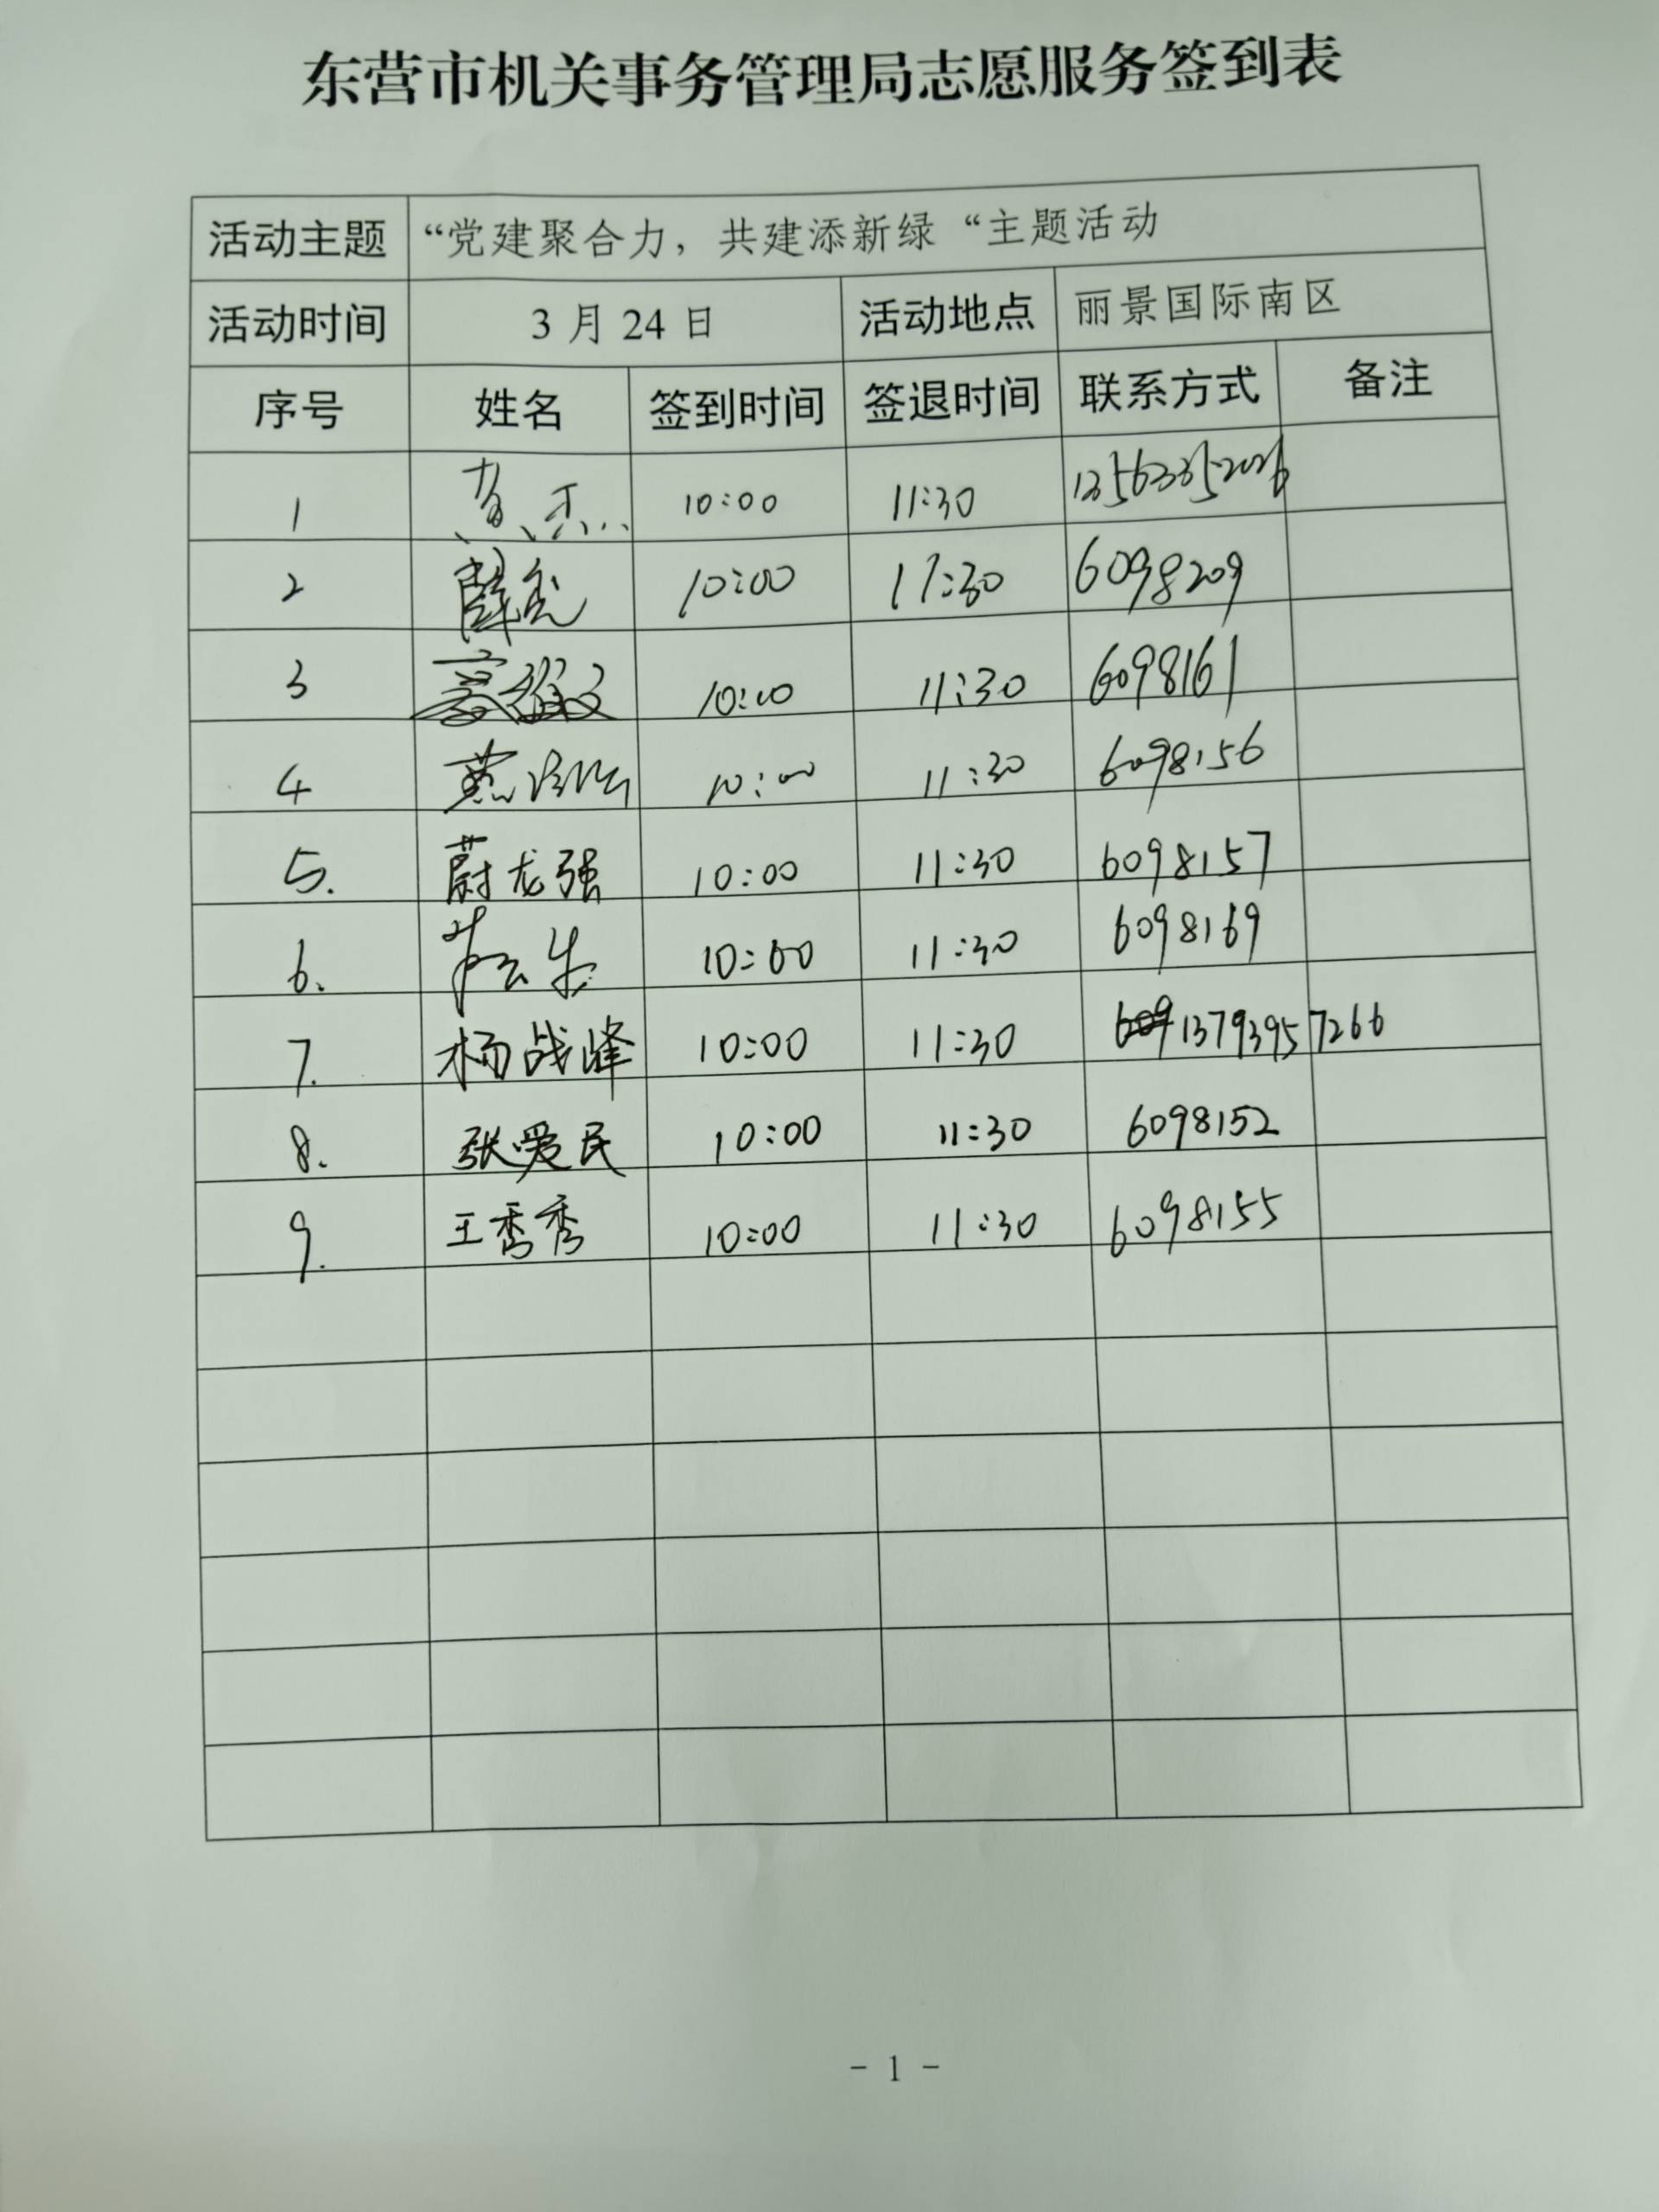 东营市机关事务管理局志愿服务签到表
活动主题 “党建聚合力，共建添新绿“主题活动
活动时间 3月24日 活动地点 丽景国际南区
序号 姓名 签到时间 签退时间 联系方式 备注
1 10:00 11:30
2 薛 10:00 11:30 6098209
3 10:00 11:30 6098161
4 10:00 11:30 6098156
5. 蔚龙强 10:00 11:30 6098157
6. 10:00 11:30 6098169
7. 杨战峰 10:00 11:30 13793957266
8. 张爱民 10:00 11:30 6098152
9. 王秀秀 10:00 11:30 6098155
- 1 -